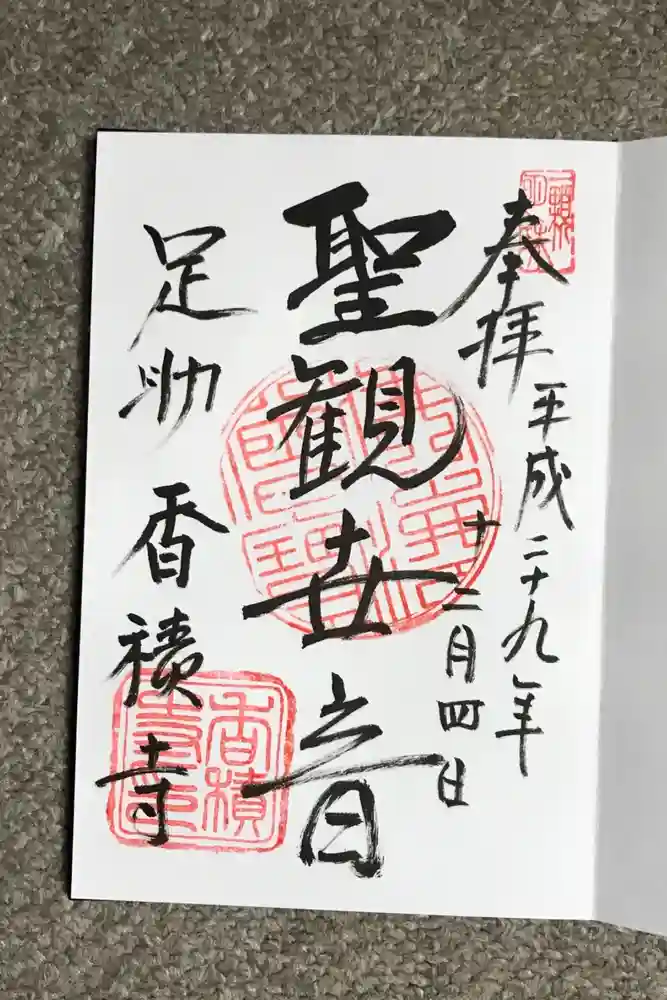 奉拝
平成二十九年
十二月四日
聖観世音
足助 香積寺
香積
寺印